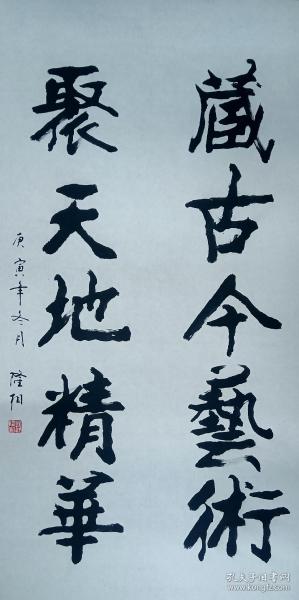 藏古今藝術
聚天地精華
庚寅年冬月 隆相
孔夫子旧书网